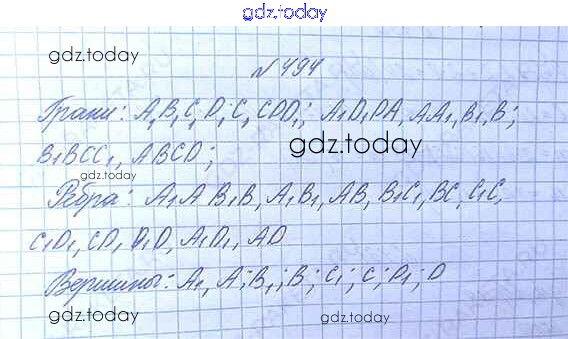 gdz.today
gdz.today
№ 494
Грани: A₁B₁C₁D₁; C₁CDD₁; A₁D₁DA, AA₁, B₁, B;
gdz.today
B₁BCC₁, ABCD;
Ребра: A₁A B₁B, A₁B₁, AB, B₁C₁, BC, C₁C,
C₁D₁, CD, D₁D, A₁D₁, AD
Вершины: A₁, A; B₁; B; C₁; C; D₁; D
gdz.today
gdz.today